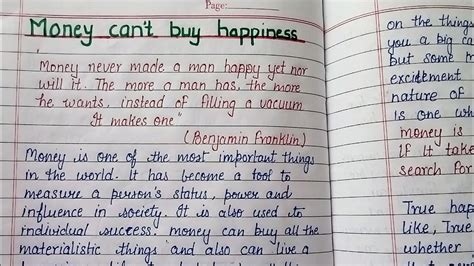 Page:
Money can't buy happiness
"Money never made a man happy yet nor
will it. The more a man has, the more
he wants, instead of filling a vacuum
It makes one"
(Benjamin Franklin)
Money is one of the most important things
in the world. It has become a tool to
measure a person's status, power and
influence in society. It is also used to
individual success. money can buy all the
materialistic things and also can live a
on the things
you a big ca
but some m
excitement
nature of
is one wh
money is
If it take
search for
True hap
like, True
whether